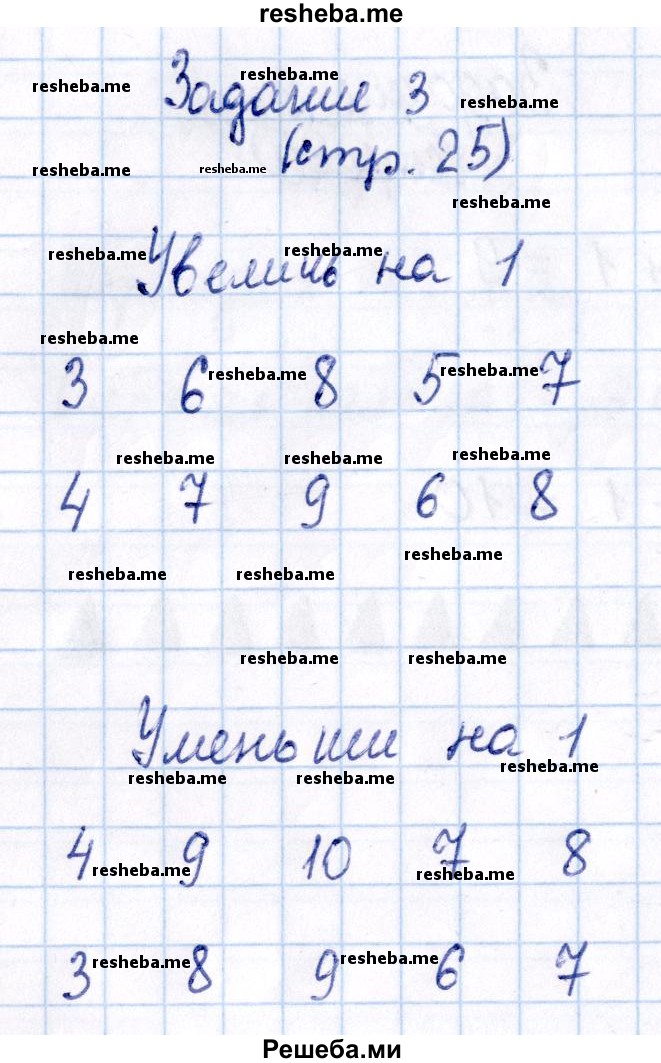 resheba.me
resheba.me resheba.me resheba.me
Задание 3
resheba.me resheba.me
(стр. 25)
resheba.me
resheba.me resheba.me
Увеличь на 1
resheba.me
resheba.me resheba.me
3 6 8 5 7
resheba.me resheba.me resheba.me
4 7 9 6 8
resheba.me
resheba.me resheba.me
resheba.me resheba.me
Уменьши на 1
resheba.me resheba.me resheba.me
4 9 10 7 8
resheba.me resheba.me
resheba.me resheba.me
3 8 9 6 7
Решеба.ми